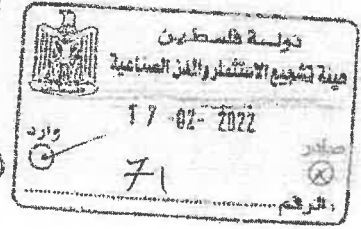 دولة فلسطين
هيئة تشجيع الاستثمار والمدن الصناعية
17 -02- 2022
وارد
صادر
71
الرقم